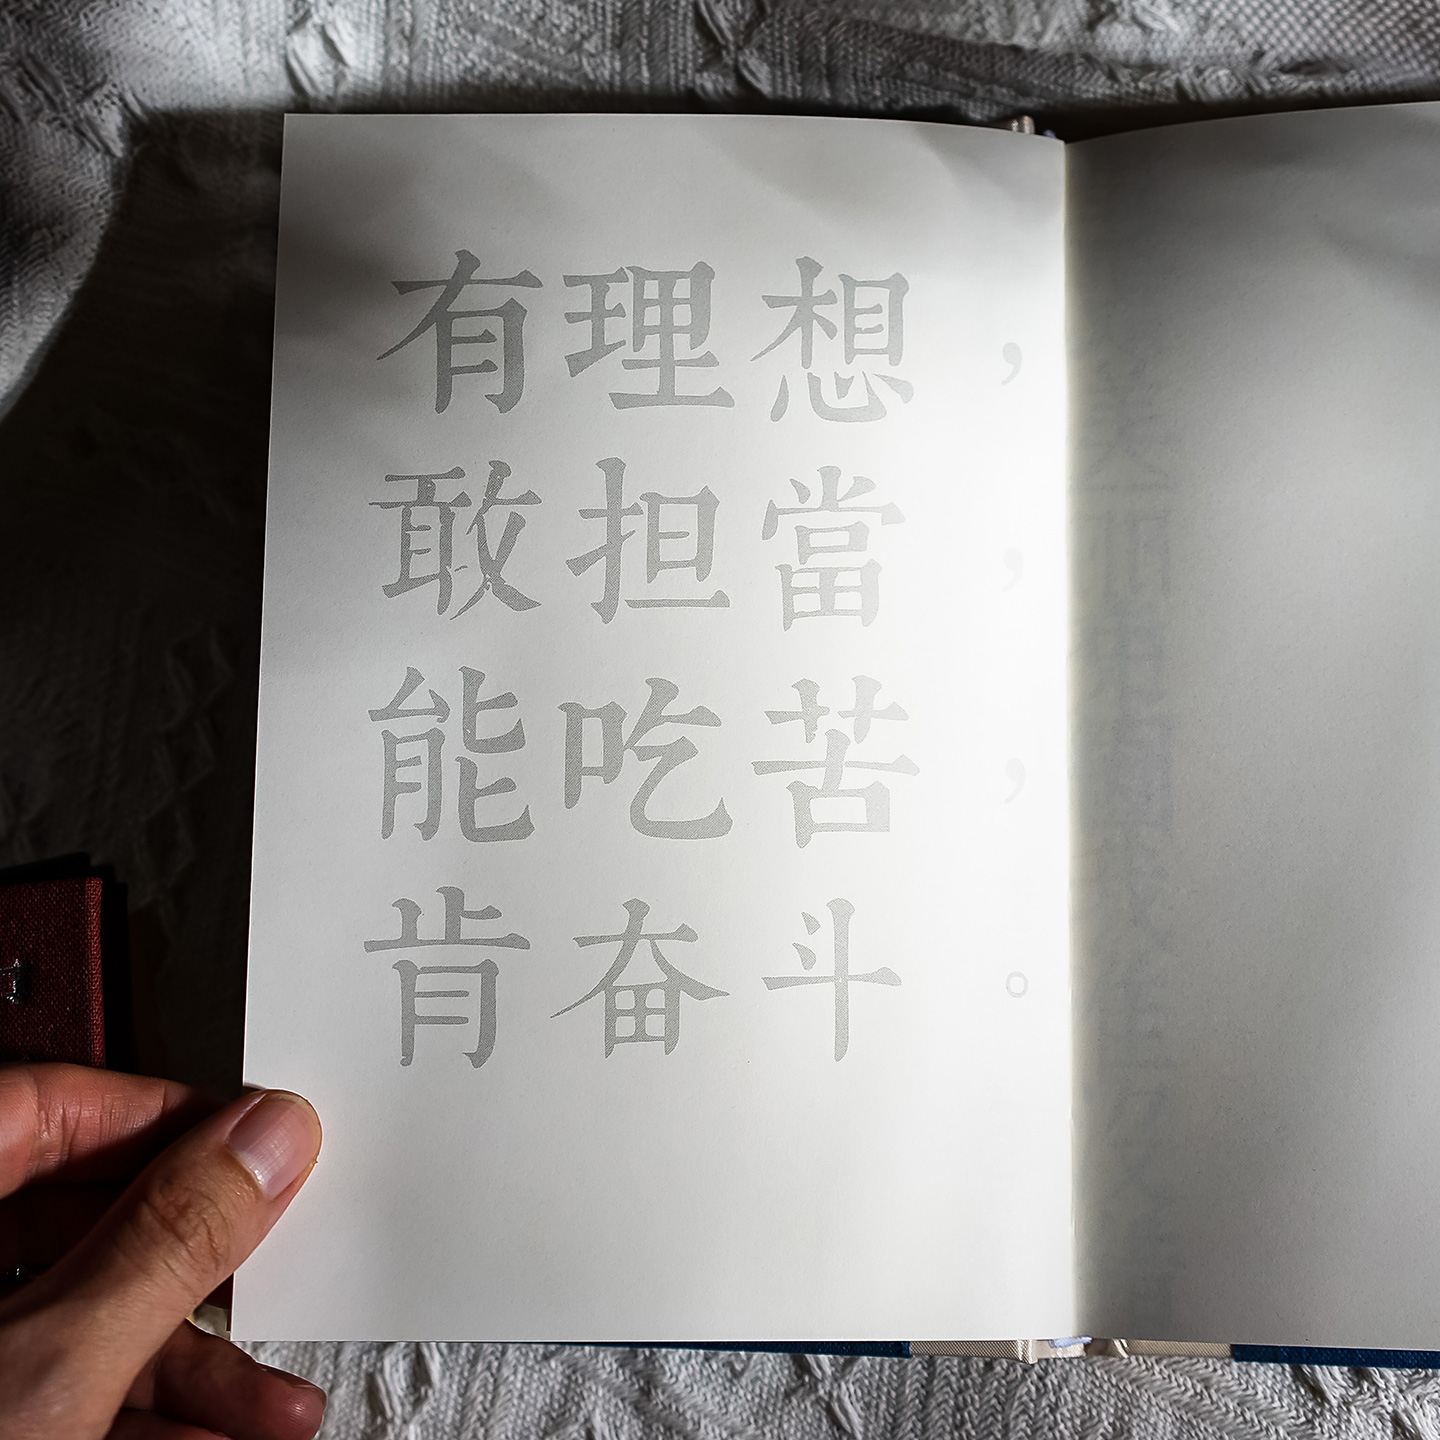 有理想，
敢担當，
能吃苦，
肯奋斗。